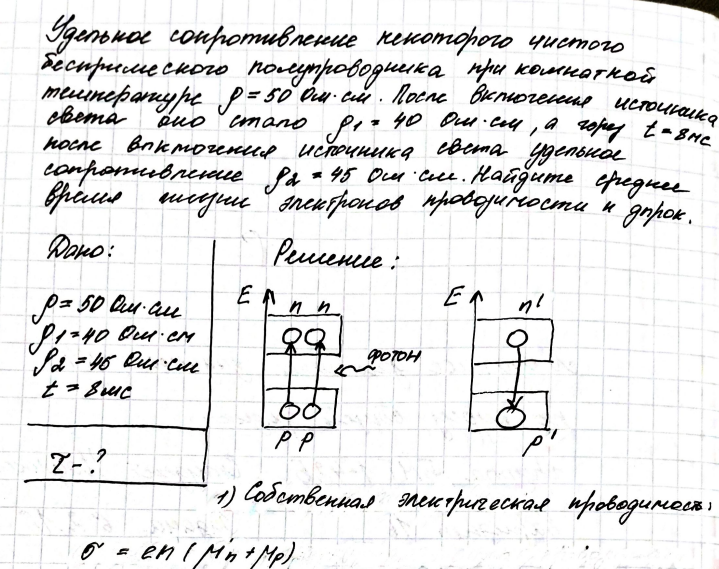 Удельное сопротивление некоторого чистого
беспримесного полупроводника при комнатной
температуре ρ = 50 Ом·см. После включения источника
света оно стало ρ1 = 40 Ом·см, а через t = 8мс
после выключения источника света удельное
сопротивление ρ2 = 45 Ом·см. Найдите среднее
время жизни электронов проводимости и дырок.
Дано:
Решение:
ρ = 50 Ом·см
ρ1 = 40 Ом·см
ρ2 = 45 Ом·см
t = 8мс
τ - ?
E n n
фотон
p p
E n'
p'
1) Собственная электрическая проводимость:
σ = en(μn + μp)